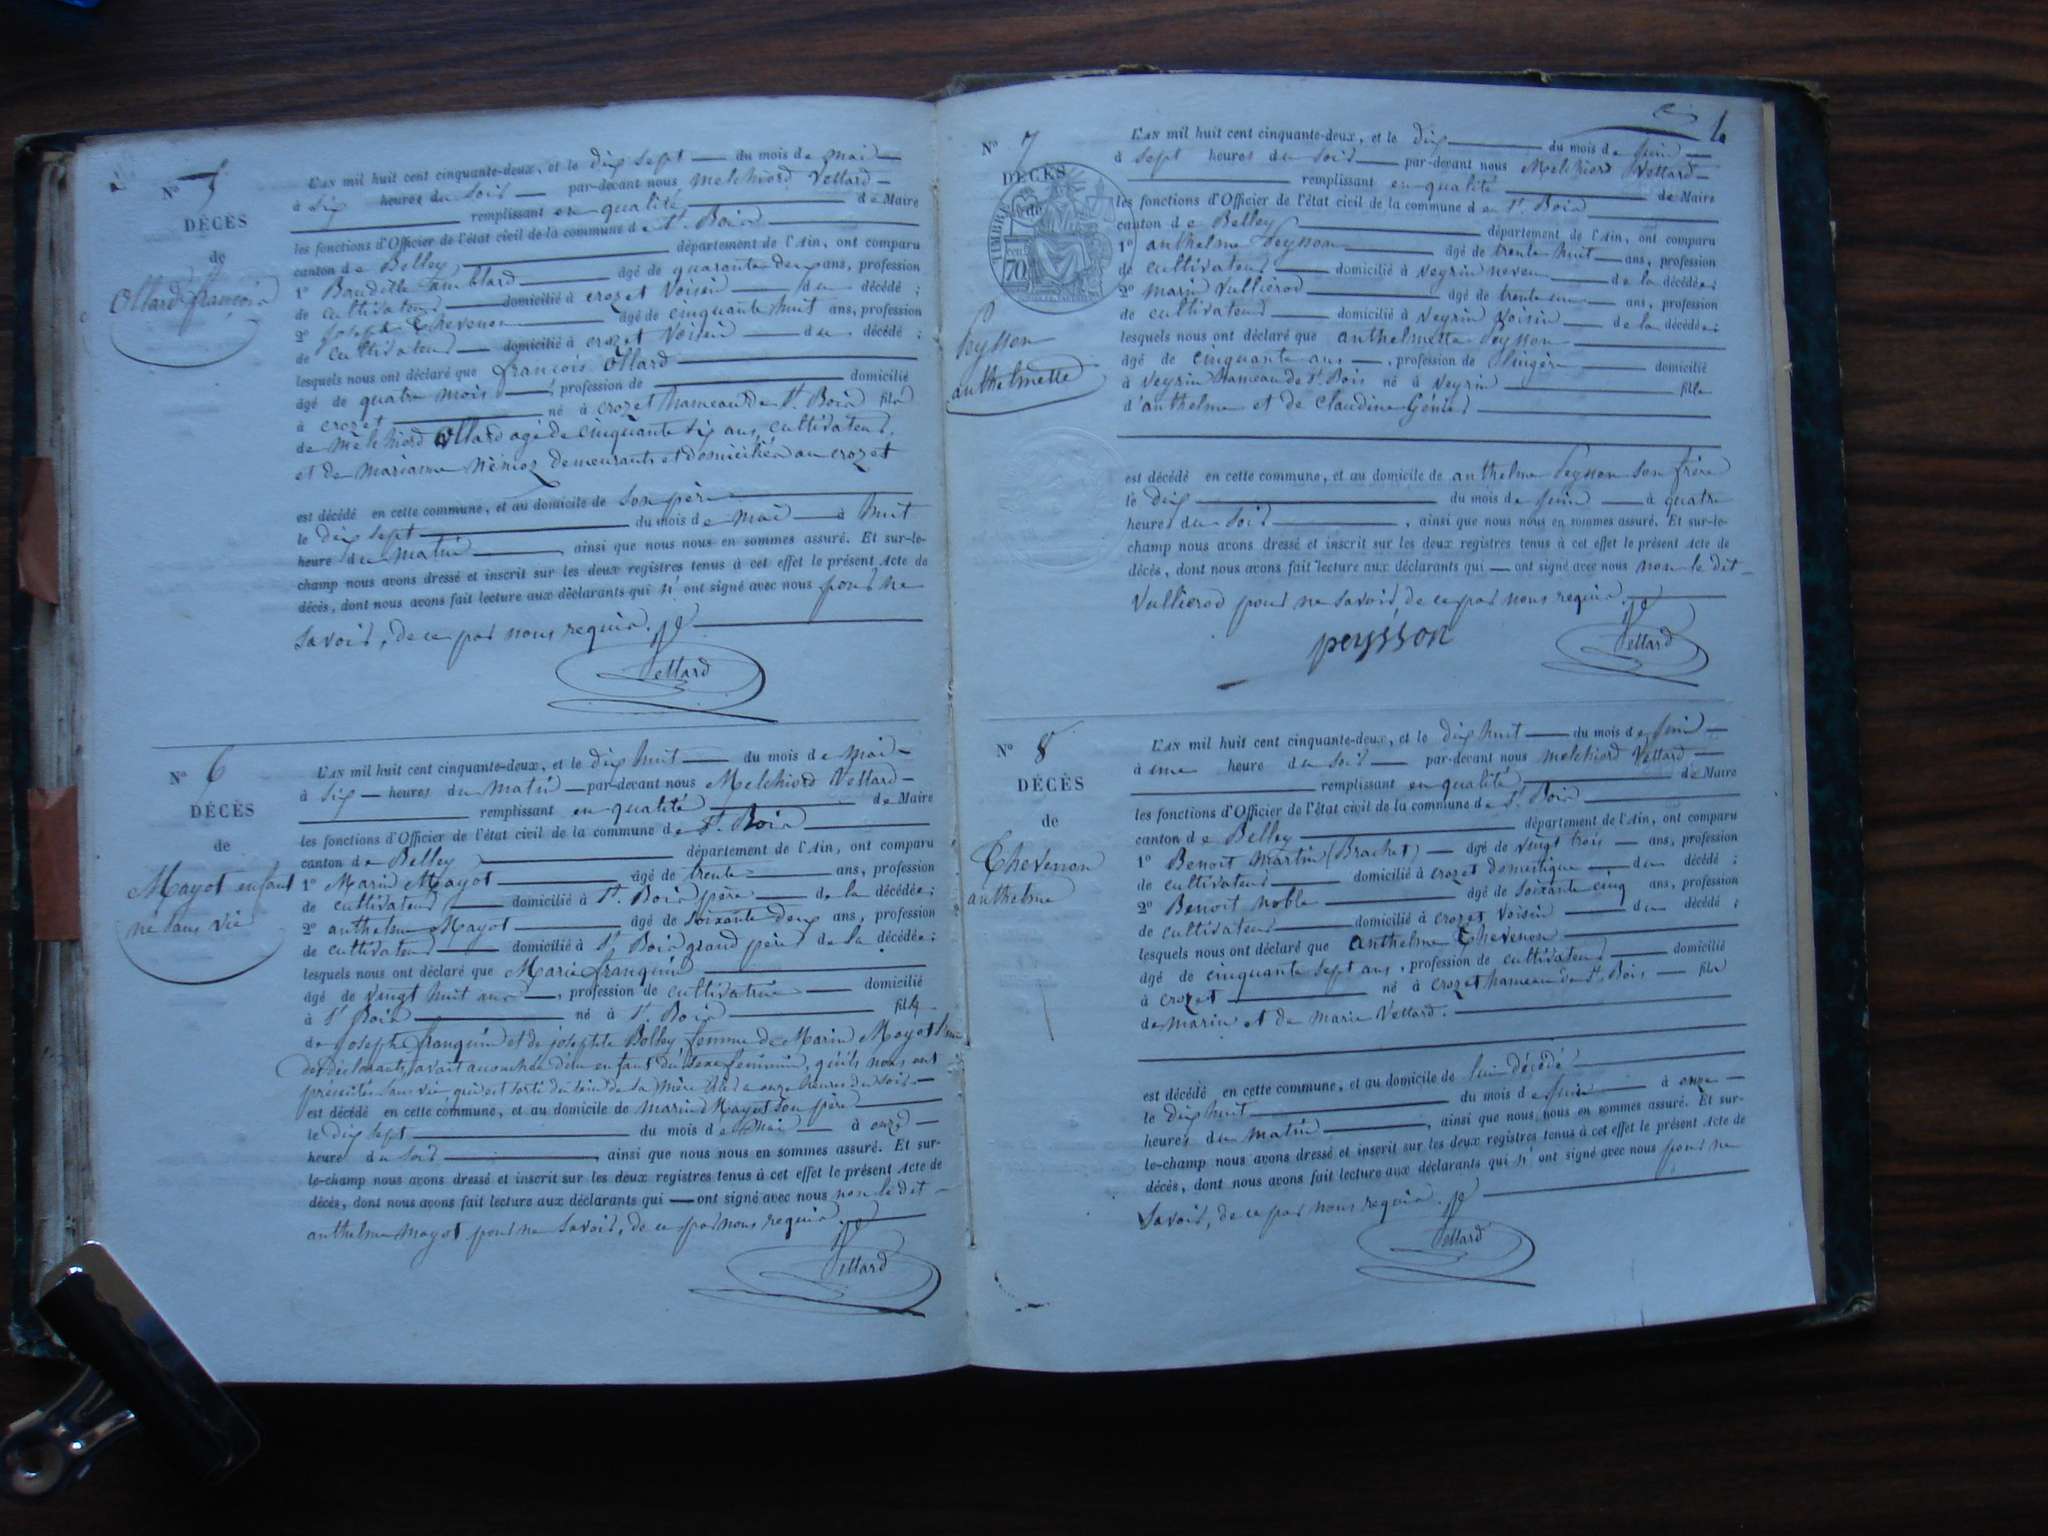 N° 5
DÉCÈS
de
Ollard françois
L'AN mil huit cent cinquante-deux, et le dix sept du mois de mai
à six heures du soir par-devant nous melchiord Vettard
remplissant en qualité de Maire
les fonctions d'Officier de l'état civil de la commune de St. Bois
canton de Belley département de l'Ain, ont comparu
1° Baudille Jamblard âgé de quarante deux ans, profession
de cultivateur domicilié à crozet Voisin du décédé ;
2° Joseph Chevenon âgé de cinquante huit ans, profession
de cultivateur domicilié à crozet Voisin du décédé ;
lesquels nous ont déclaré que françois Ollard
âgé de quatre mois, profession de domicilié
à crozet né à crozet hameau de St. Bois fils
de melchiord Ollard agé de cinquante six ans, cultivateur,
et de marianne demeurants et domiciliés au crozet
est décédé en cette commune, et au domicile de son père
le dix sept du mois de mai à huit
heure du matin, ainsi que nous nous en sommes assuré. Et sur-le-
champ nous avons dressé et inscrit sur les deux registres tenus à cet effet le présent Acte de
décès, dont nous avons fait lecture aux déclarants qui n' ont signé avec nous pour ne
savoir, de ce par nous requis.
Vettard
N° 6
DÉCÈS
de
Mayot enfant
né sans vie
L'AN mil huit cent cinquante-deux, et le dix huit du mois de mai
à six heures du matin par-devant nous Melchiord Vettard
remplissant en qualité de Maire
les fonctions d'Officier de l'état civil de la commune de St. Bois
canton de Belley département de l'Ain, ont comparu
1° Marin Mayot âgé de trente ans, profession
de cultivateur domicilié à St. Bois père de la décédée ;
2° anthelme Mayot âgé de soixante deux ans, profession
de cultivateur domicilié à St. Bois grand père de la décédée ;
lesquels nous ont déclaré que Marie franquin
âgé de vingt huit ans, profession de cultivatrice domicilié
à St Bois né à St. Bois fille
de joseph franquin et de josephte Bolley femme de Marin Mayot l'un
des déclarants, avait accouchée d'un enfant du sexe féminin, qu'ils nous ont
présentés sans vie, qui est sorti du sein de sa mère onze heures du soir
est décédé en cette commune, et au domicile de marin Mayot son père
le dix sept du mois de mai à onze
heure du soir, ainsi que nous nous en sommes assuré. Et sur-
le-champ nous avons dressé et inscrit sur les deux registres tenus à cet effet le présent Acte de
décès, dont nous avons fait lecture aux déclarants qui ont signé avec nous non le dit
anthelme mayot pour ne savoir, de ce par nous requis.
Vettard
N° 7
DÉCÈS
de
TIMBRE
70
Peysson
anthelmette
L'AN mil huit cent cinquante-deux, et le dix du mois de juin
à sept heures du soir par-devant nous Melchiord Vettard
remplissant en qualité de Maire
les fonctions d'Officier de l'état civil de la commune de St. Bois
canton de Belley département de l'Ain, ont comparu
1° anthelme Peysson âgé de trente huit ans, profession
de cultivateur domicilié à Veyrin neveu de la décédée ;
2° marin Vullierod âgé de trente un ans, profession
de cultivateur domicilié à Veyrin Voisin de la décédée ;
lesquels nous ont déclaré que anthelmette Peysson
âgé de cinquante ans, profession de lingère domicilié
à Veyrin hameau de St. Bois né à Veyrin fille
d'anthelme et de claudine Génier
est décédé en cette commune, et au domicile de anthelme Peysson son frère
le dix du mois de juin à quatre
heures du soir, ainsi que nous nous en sommes assuré. Et sur-le-
champ nous avons dressé et inscrit sur les deux registres tenus à cet effet le présent Acte de
décès, dont nous avons fait lecture aux déclarants qui ont signé avec nous non le dit
Vullierod pour ne savoir, de ce par nous requis.
peysson
Vettard
N° 8
DÉCÈS
de
Chevenon
anthelme
L'AN mil huit cent cinquante-deux, et le dix huit du mois de juin
à une heure du soir par-devant nous melchiord Vettard
remplissant en qualité de Maire
les fonctions d'Officier de l'état civil de la commune de St. Bois
canton de Belley département de l'Ain, ont comparu
1° Benoit Martin (Brachet) âgé de vingt trois ans, profession
de cultivateur domicilié à crozet domestique du décédé ;
2° Benoit noble âgé de soixante cinq ans, profession
de cultivateur domicilié à crozet Voisin du décédé ;
lesquels nous ont déclaré que anthelme Chevenon
âgé de cinquante sept ans, profession de cultivateur domicilié
à crozet né à crozet hameau de St. Bois fils
de marin et de marie Vettard.
est décédé en cette commune, et au domicile de lui décédé
le dix huit du mois de juin à onze
heures du matin, ainsi que nous nous en sommes assuré. Et sur-
le-champ nous avons dressé et inscrit sur les deux registres tenus à cet effet le présent Acte de
décès, dont nous avons fait lecture aux déclarants qui n' ont signé avec nous pour ne
savoir, de ce par nous requis.
Vettard